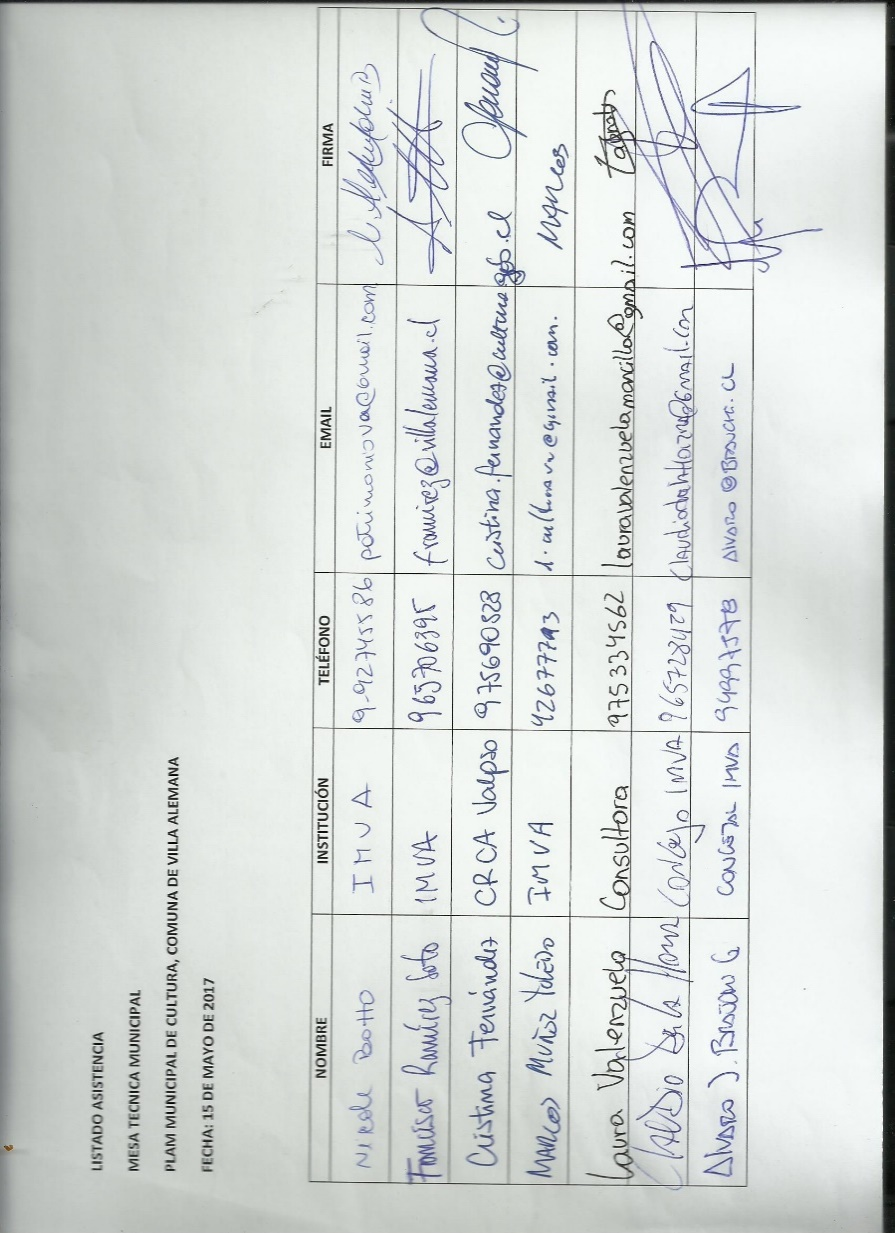 LISTADO ASISTENCIA
MESA TECNICA MUNICIPAL
PLAM MUNICIPAL DE CULTURA, COMUNA DE VILLA ALEMANA
FECHA: 15 DE MAYO DE 2017
NOMBRE INSTITUCIÓN TELÉFONO EMAIL FIRMA
Nicole Botto IMVA 9-92745586 patrimoniova@gmail.com
Francisco Ramírez Soto IMVA 965706395 framirez@villalemana.cl
Cristina Fernández CRCA Valpso 975690528 cristina.fernandez@cultura.gob.cl
MARCOS MUÑOZ TOLEDO IMVA 42677793 d.culturava@gmail.com. MARCOS
Laura Valenzuela Consultora 975334562 lauravalenzuelamancilla@gmail.com
Claudio Concejo IMVA 965728429
Alvaro J. Brauchi G. CONCEJAL IMVA 949975778 Alvaro@Brauchi.cl